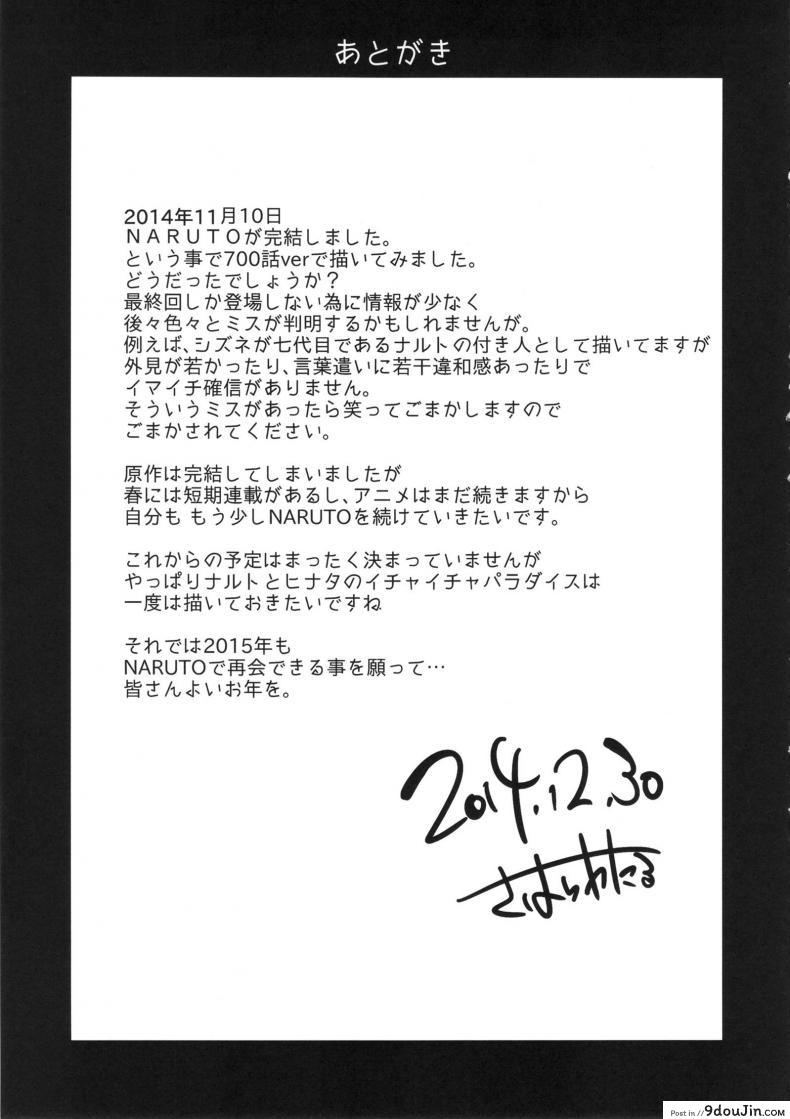 あとがき
2014年11月10日
ＮＡＲＵＴＯが完結しました。
という事で700話verで描いてみました。
どうだったでしょうか？
最終回しか登場しない為に情報が少なく
後々色々とミスが判明するかもしれませんが。
例えば、シズネが七代目であるナルトの付き人として描いてますが
外見が若かったり、言葉遣いに若干違和感あったりで
イマイチ確信がありません。
そういうミスがあったら笑ってごまかしますので
ごまかされてください。
原作は完結してしまいましたが
春には短期連載があるし、アニメはまだ続きますから
自分も もう少しNARUTOを続けていきたいです。
これからの予定はまったく決まっていませんが
やっぱりナルトとヒナタのイチャイチャパラダイスは
一度は描いておきたいですね
それでは2015年も
NARUTOで再会できる事を願って…
皆さんよいお年を。
2014.12.30
さはらわたる
Post in // 9douJin.com